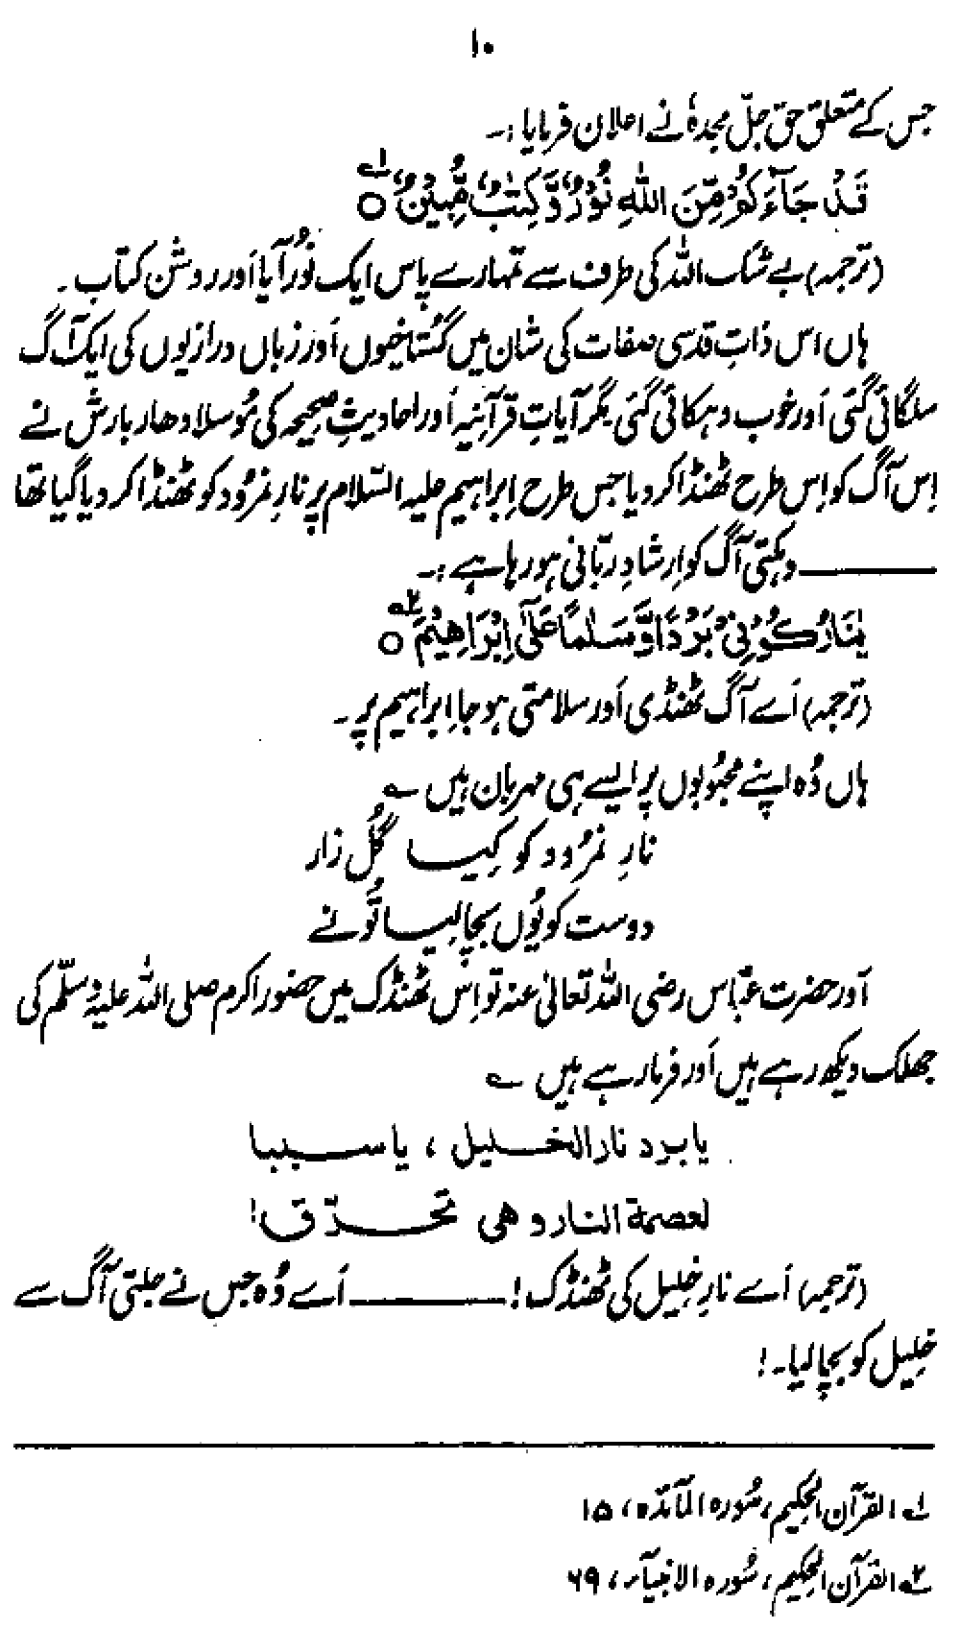 ۱۰
جس کے متعلق حق جلّ مجدہٗ نے اعلان فرمایا :۔
قَدْ جَآءَكُمْ مِّنَ اللّٰهِ نُوْرٌ وَّ كِتٰبٌ مُّبِيْنٌ ۝ ۱؎
(ترجمہ) بے شک اللہ کی طرف سے تمہارے پاس ایک نُور آیا اَور روشن کتاب ۔
ہاں اس ذاتِ قدسی صفات کی شان میں گستاخیوں اَور زباں درازیوں کی ایک آگ
سلگائی گئی اَور خوب دہکائی گئی مگر آیاتِ قرآنیہ اَور احادیثِ صحیحہ کی مُوسلا دھار بارش نے
اِس آگ کو اِس طرح ٹھنڈا کر دیا جس طرح اِبراہیم علیہ السّلام پر نارِ نمرُود کو ٹھنڈا کر دیا گیا تھا
——— دہکتی آگ کو اِرشادِ ربّانی ہو رہا ہے :۔
يٰنَارُ كُوْنِيْ بَرْدًا وَّ سَلٰمًا عَلٰٓى اِبْرَاهِيْمَ ۝ ۲؎
(ترجمہ) اَے آگ ٹھنڈی اَور سلامتی ہو جا اِبراہیم پر ۔
ہاں وُہ اپنے محبُوبوں پر ایسے ہی مہربان ہیں ؎
نارِ نمرُود کو کِیا گُل زار
دوست کو یُوں بچا لیا تُو نے
اَور حضرت عبّاس رضی اللہ تعالیٰ عنہ تو اِس ٹھنڈک میں حضور اکرم صلی اللہ علیہ وسلّم کی
جھلک دیکھ رہے ہیں اَور فرما رہے ہیں ؎
یا برد نار الخلیل ، یا سببا
لعصمة النار وهی تحترق !
(ترجمہ) اَے نارِ خلیل کی ٹھنڈک ! ——— اَے وُہ جس نے جلتی آگ سے
خلیل کو بچا لیا ۔ !
۱؎ القرآن الحکیم ، سُورہ المآئدہ ، ۱۵
۲؎ القرآن الحکیم ، سُورہ الانبیآء ، ۶۹